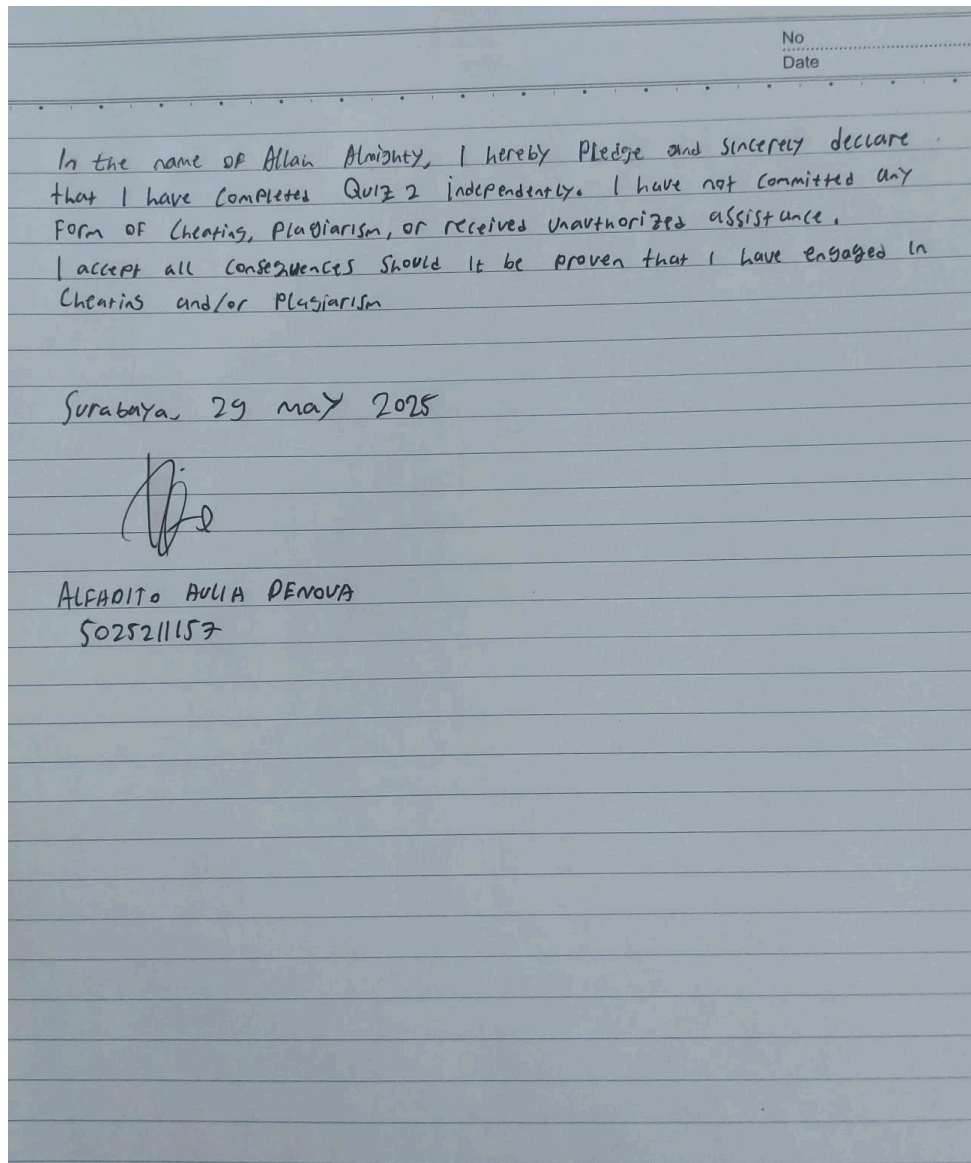 No
Date
In the name of Allah Almighty, I hereby Pledge and sincerely declare
that I have Completed Quiz 2 independently. I have not Committed any
Form OF Cheating, Plagiarism, or received Unauthorized assistance.
I accept all Consequences Should it be proven that I have engaged in
Cheating and/or Plagiarism
Surabaya, 29 may 2025
ALFADITO AULIA DENOVA
5025211157